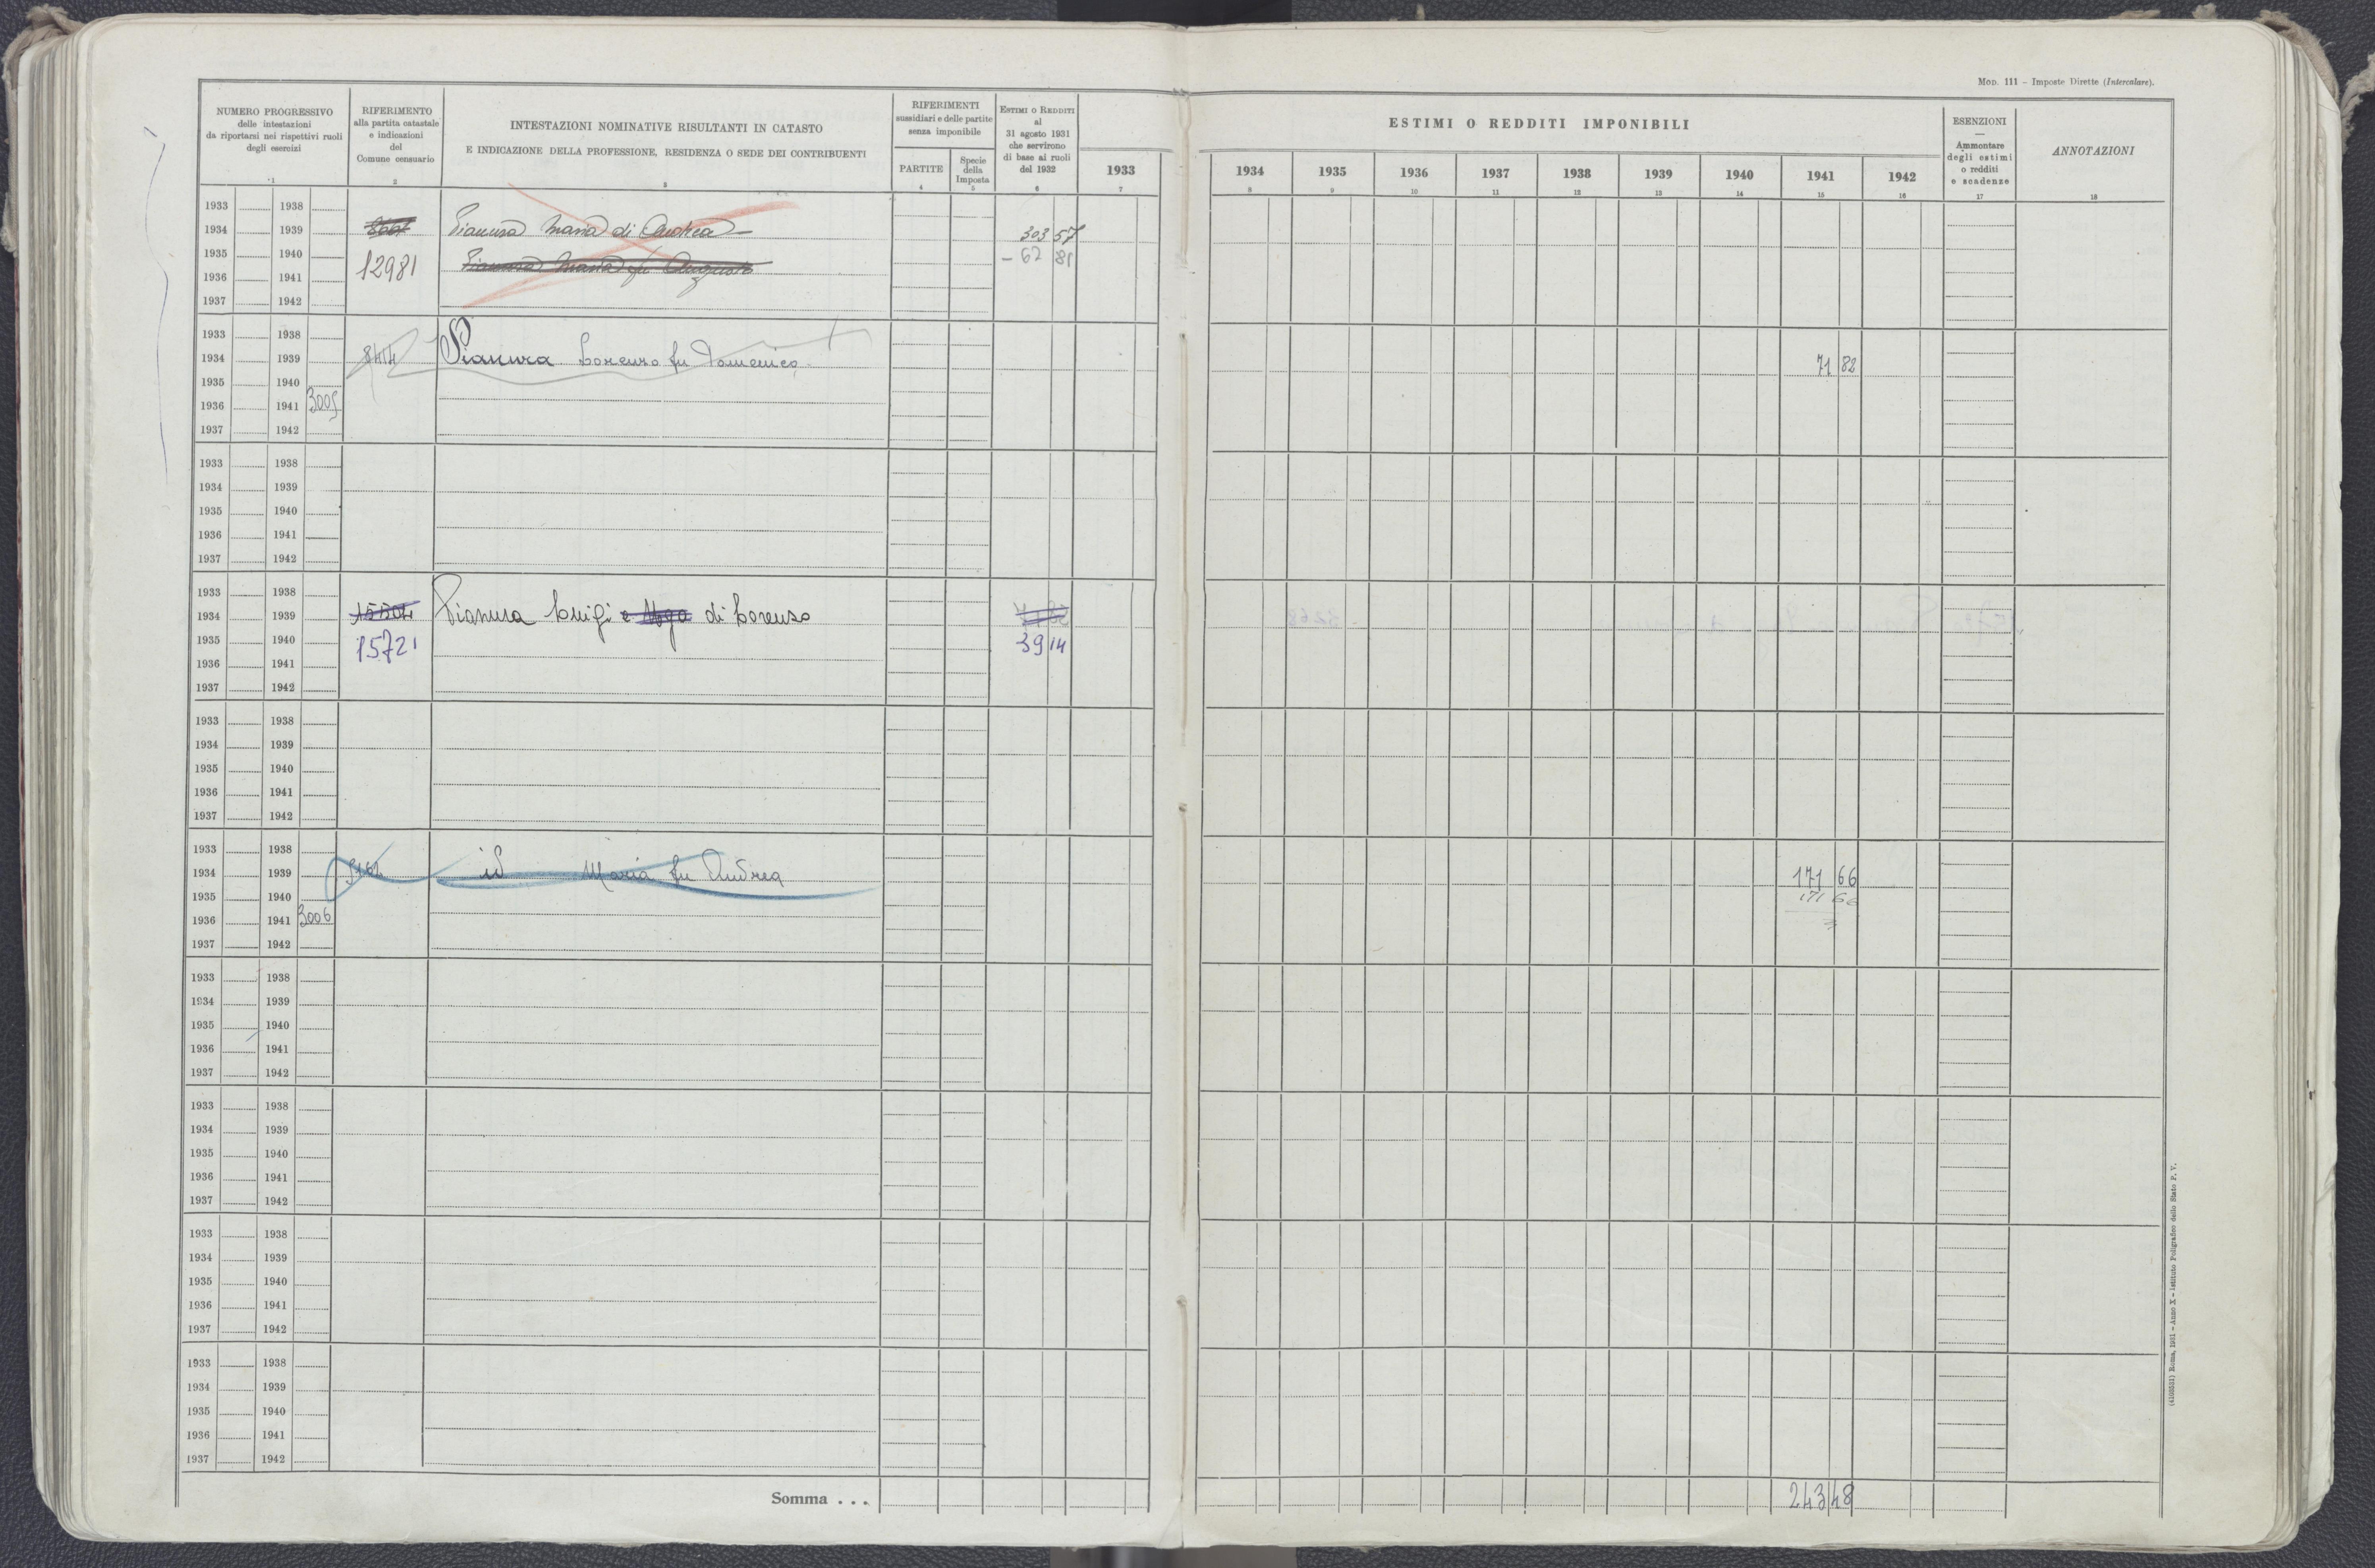 MOD. 111 – Imposte Dirette (Intercalare).
NUMERO PROGRESSIVO
delle intestazioni
da riportarsi nei rispettivi ruoli
degli esercizi
1
RIFERIMENTO
alla partita catastale
e indicazioni
del
Comune censuario
2
INTESTAZIONI NOMINATIVE RISULTANTI IN CATASTO
E INDICAZIONE DELLA PROFESSIONE, RESIDENZA O SEDE DEI CONTRIBUENTI
3
RIFERIMENTI
sussidiari e delle partite
senza imponibile
PARTITE
4
Specie
della
Imposta
5
ESTIMI O REDDITI
al
31 agosto 1931
che servirono
di base ai ruoli
del 1932
6
ESTIMI O REDDITI IMPONIBILI
1933 1934 1935 1936 1937 1938 1939 1940 1941 1942
7 8 9 10 11 12 13 14 15 16
ESENZIONI
—
Ammontare
degli estimi
o redditi
e scadenze
17
ANNOTAZIONI
18
1933 1938
1934 1939 Pianura Maria di Andrea 303 57
1935 1940 12981 Pianura Maria fu Augusto – 62 81
1936 1941
1937 1942
1933 1938
1934 1939 8414 Pianura Lorenzo fu Domenico 71 82
1935 1940
1936 1941 3005
1937 1942
1933 1938
1934 1939
1935 1940
1936 1941
1937 1942
1933 1938
1934 1939 Pianura Luigi e Ugo di Lorenzo
1935 1940 15721 39 14
1936 1941
1937 1942
1933 1938
1934 1939
1935 1940
1936 1941
1937 1942
1933 1938
1934 1939 id Maria fu Andrea 171 66
1935 1940 171 66
1936 1941 3006 3
1937 1942
1933 1938
1934 1939
1935 1940
1936 1941
1937 1942
1933 1938
1934 1939
1935 1940
1936 1941
1937 1942
1933 1938
1934 1939
1935 1940
1936 1941
1937 1942
1933 1938
1934 1939
1935 1940
1936 1941
1937 1942
Somma . . . 243 48
Roma, 1931 – Anno X – Istituto Poligrafico dello Stato P. V.